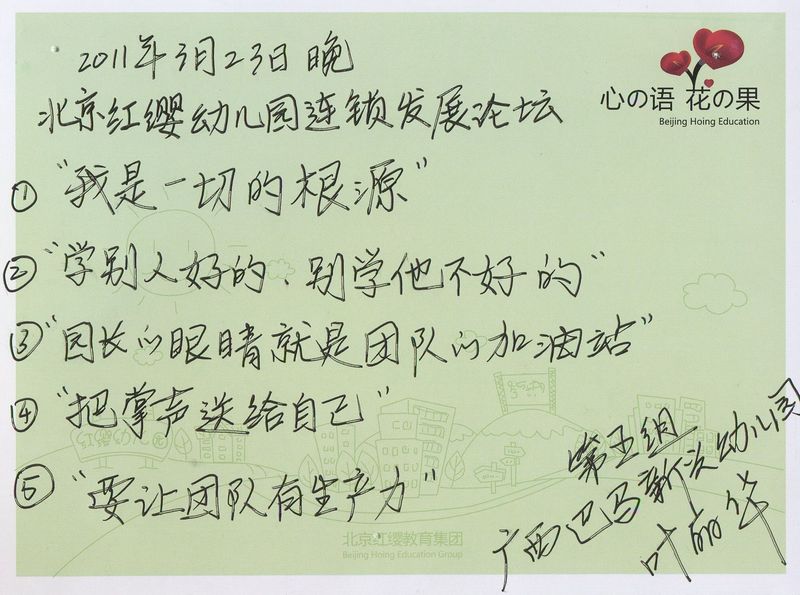 2011年3月23日晚
心の语 花の果
Beijing Hoing Education
北京红缨幼儿园连锁发展论坛
① "我是一切的根源"
② "学别人好的、别学他不好的"
③ "园长的眼睛就是团队的加油站"
④ "把掌声送给自己"
红缨幼儿园
⑤ "要让团队有生产力"
第五组
广西巴马新汉幼儿园
叶丽华
北京红缨教育集团
Beijing Hoing Education Group